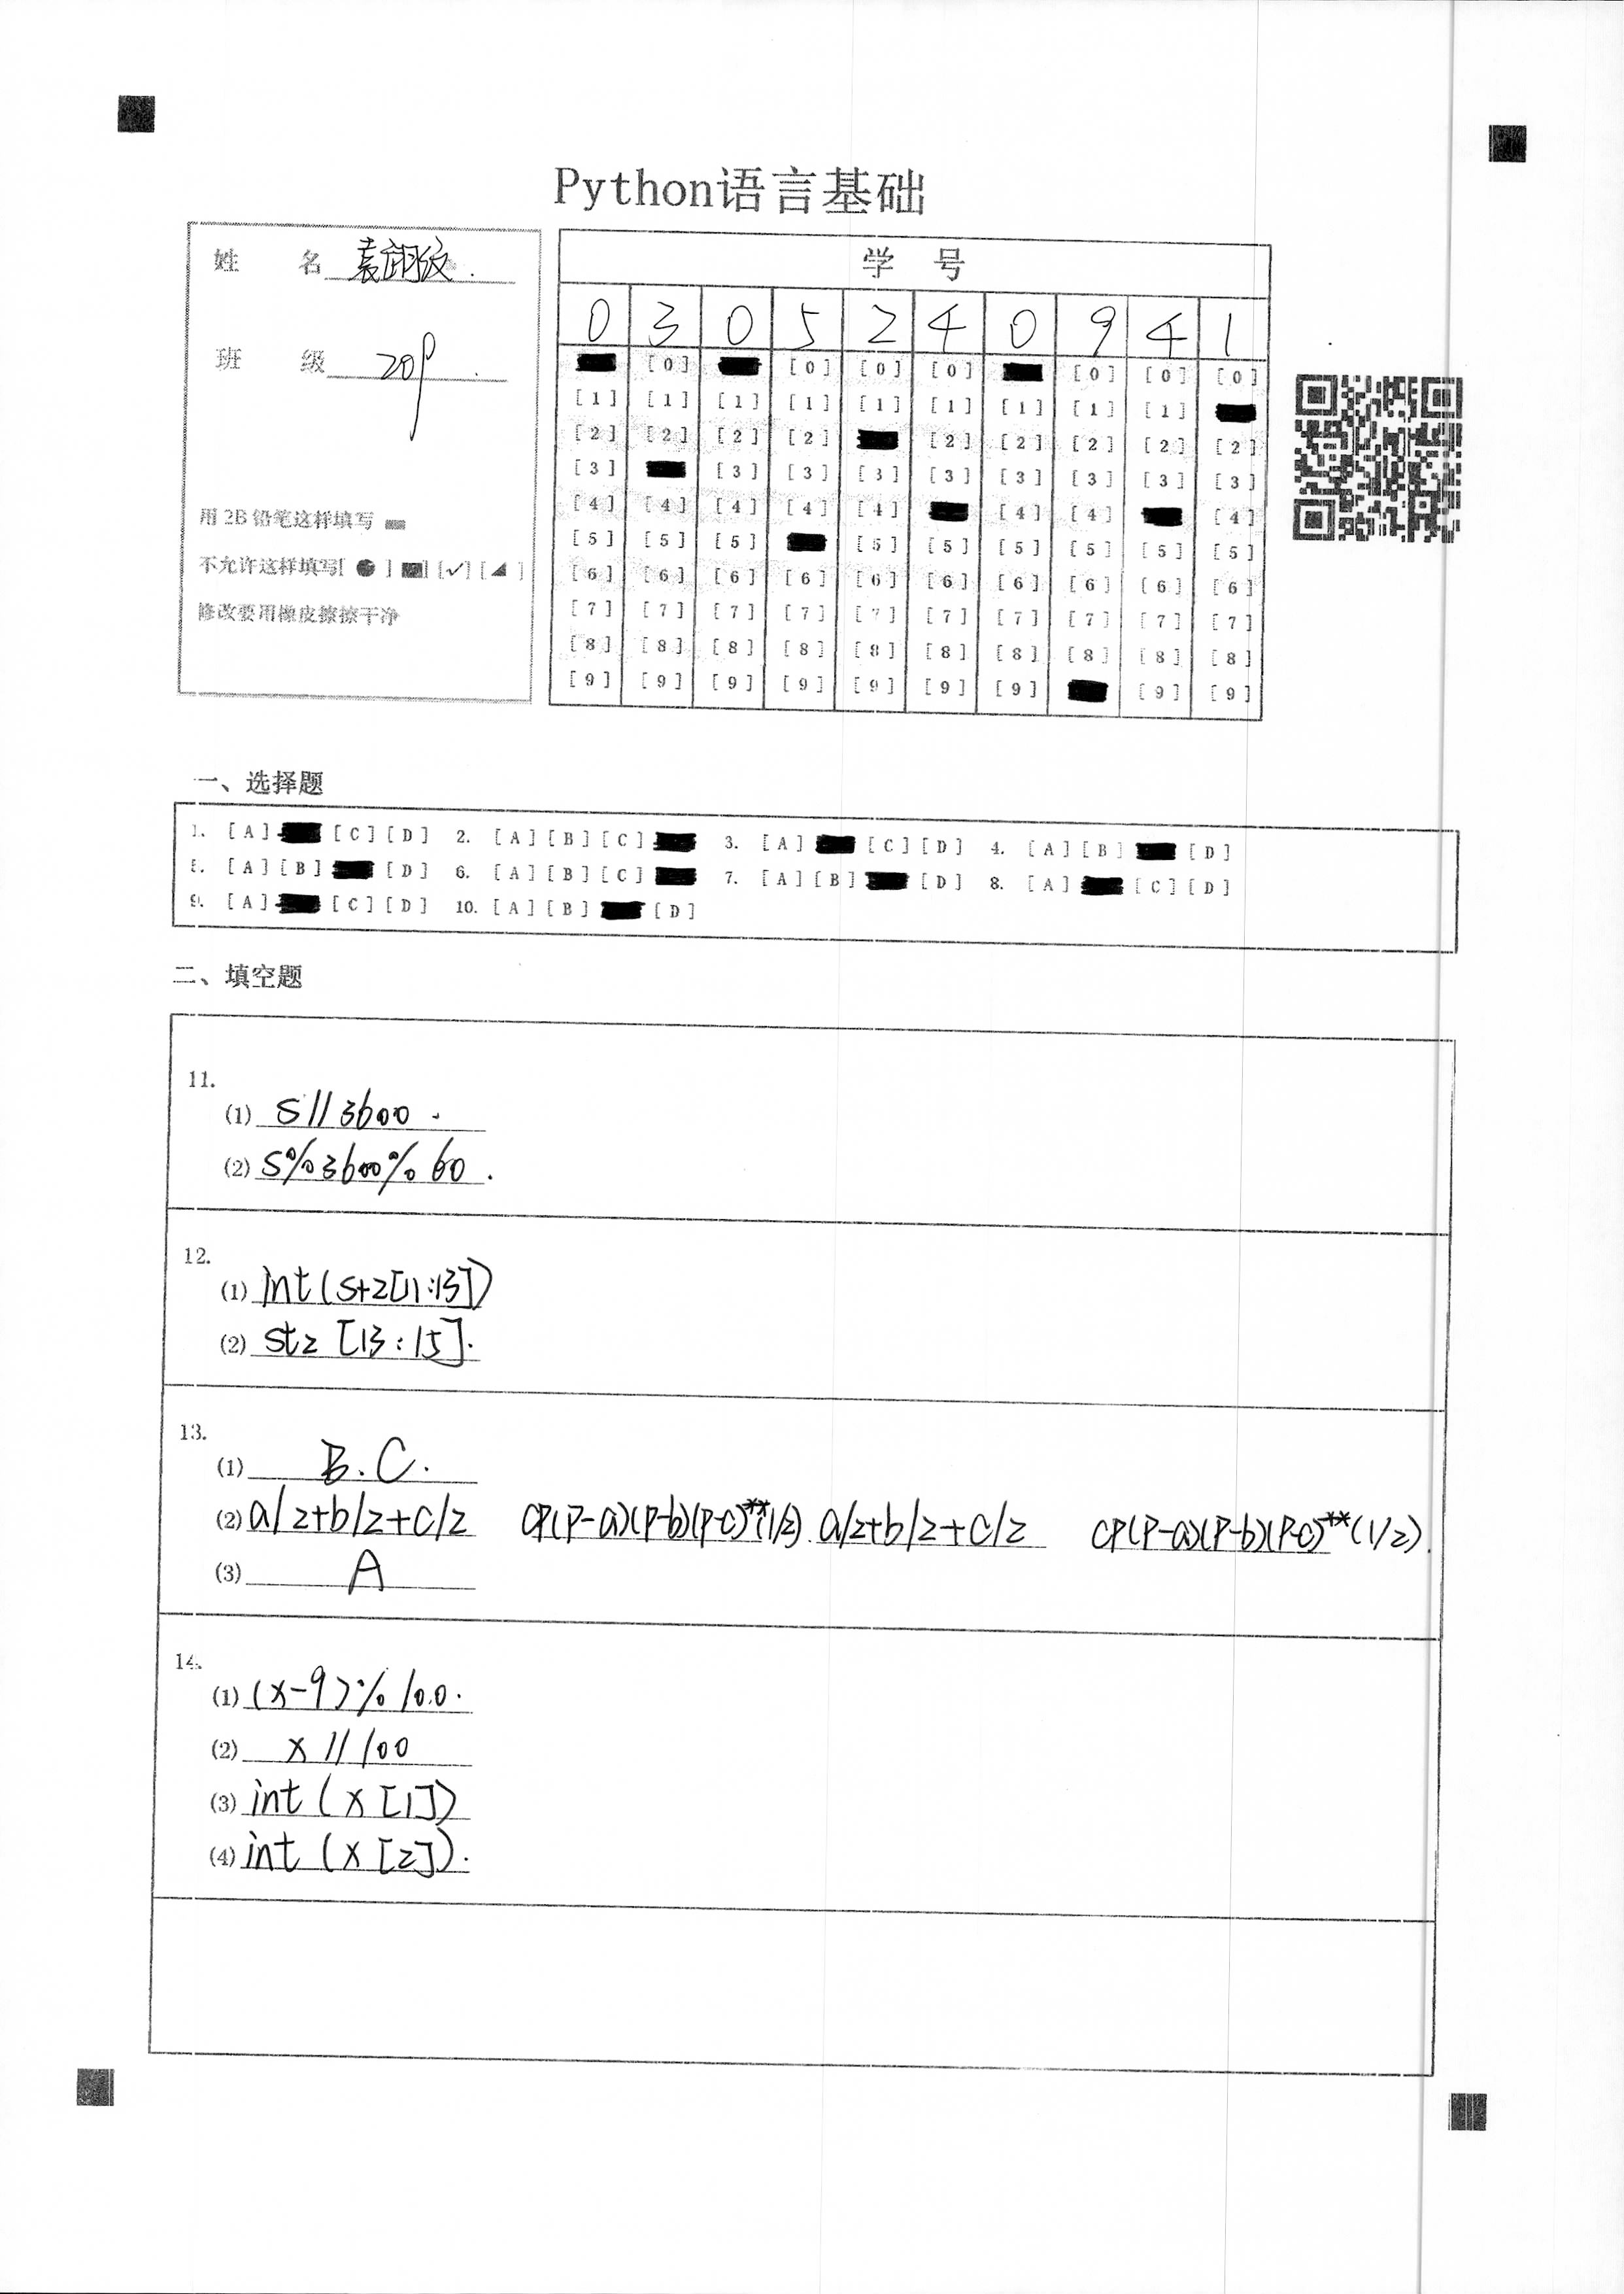 Python语言基础
姓 名 袁
班 级 209
用 2B 铅笔这样填写
不允许这样填写[ ● ] [■] [✓] [◢ ]
修改要用橡皮擦擦干净
学 号
0 3 0 5 2 4 0 9 4 1
[0] [0] [0] [0] [0] [0] [0]
[1] [1] [1] [1] [1] [1] [1] [1] [1]
[2] [2] [2] [2] [2] [2] [2] [2] [2]
[3] [3] [3] [3] [3] [3] [3] [3] [3]
[4] [4] [4] [4] [4] [4] [4] [4]
[5] [5] [5] [5] [5] [5] [5] [5] [5]
[6] [6] [6] [6] [6] [6] [6] [6] [6] [6]
[7] [7] [7] [7] [7] [7] [7] [7] [7] [7]
[8] [8] [8] [8] [8] [8] [8] [8] [8] [8]
[9] [9] [9] [9] [9] [9] [9] [9] [9]
一、选择题
1. [A] [C] [D] 2. [A] [B] [C] 3. [A] [C] [D] 4. [A] [B] [D]
5. [A] [B] [D] 6. [A] [B] [C] 7. [A] [B] [D] 8. [A] [C] [D]
9. [A] [C] [D] 10. [A] [B] [D]
二、填空题
11.
(1) s//3600
(2) s%3600%60.
12.
(1) int(s+2[11:13])
(2) stz [13:15].
13.
(1) B.C.
(2) a/2+b/2+c/2 (P(P-a)(P-b)(P-c)**(1/2) a/2+b/2+c/2 (P(P-a)(P-b)(P-c)**(1/2).
(3) A
14.
(1) (x-9)%100.
(2) x//100
(3) int(x[1])
(4) int(x[2]).